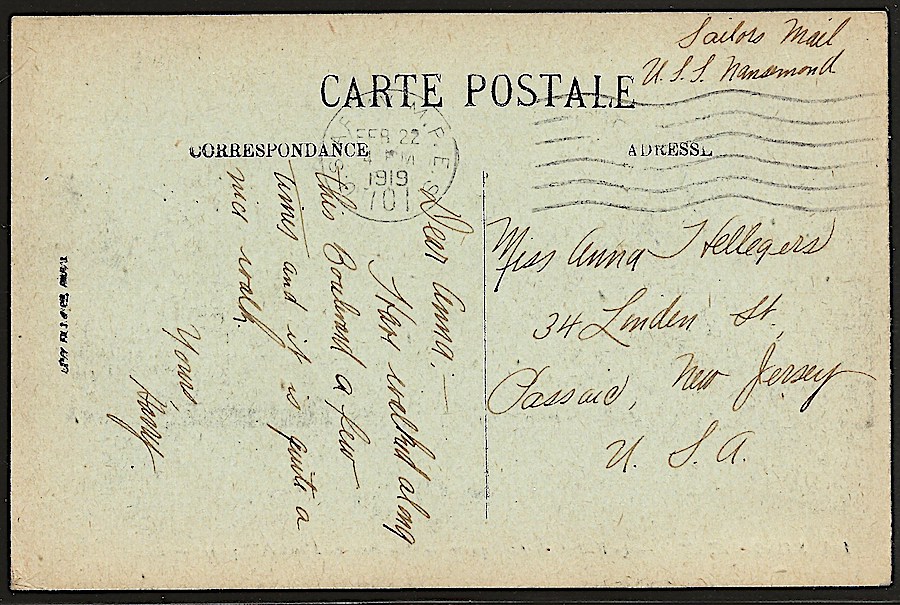 Sailors Mail
U.S.S. Nansemond
CARTE POSTALE
CORRESPONDANCE
ADRESSE
FEB 22
4 PM
1919
701
M.P.E.S.
Dear Anna:—
Have walked along
this Boulvard a few
times and it is quite a
nice walk
Yours,
Harry
Miss Anna Hellegers
34 Linden St.
Passaic, New Jersey
U. S. A.